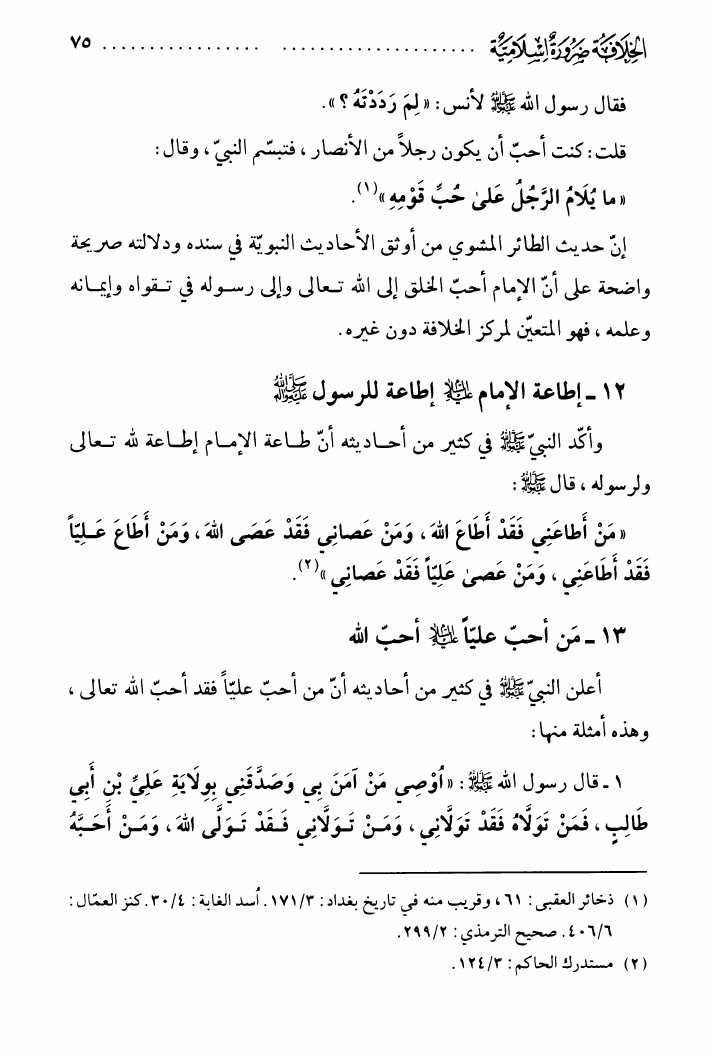 الخِلافَة ضَرُورَة إسْلاميّة ........................................ ٧٥
فقال رسول الله ﷺ لأنس: «لِمَ رَدَدْتَهُ؟».
قلت: كنت أحبّ أن يكون رجلاً من الأنصار، فتبسّم النبيّ، وقال:
«ما يُلَامُ الرَّجُلُ عَلىٰ حُبِّ قَوْمِهِ»(١).
إنّ حديث الطائر المشوي من أوثق الأحاديث النبويّة في سنده ودلالته صريحة
واضحة على أنّ الإمام أحبّ الخلق إلى الله تعالى وإلى رسوله في تقواه وإيمانه
وعلمه، فهو المتعيّن لمركز الخلافة دون غيره.
١٢ ـ إطاعة الإمام عليه السلام إطاعة للرسول ﷺ
وأكّد النبيّ ﷺ في كثير من أحاديثه أنّ طاعة الإمام إطاعة لله تعالى
ولرسوله، قال ﷺ:
«مَنْ أَطاعَنِي فَقَدْ أَطَاعَ اللهَ، وَمَنْ عَصانِي فَقَدْ عَصَى اللهَ، وَمَنْ أَطَاعَ عَلِيّاً
فَقَدْ أَطَاعَنِي، وَمَنْ عَصىٰ عَلِيّاً فَقَدْ عَصانِي»(٢).
١٣ ـ مَن أحبّ عليّاً عليه السلام أحبّ الله
أعلن النبيّ ﷺ في كثير من أحاديثه أنّ من أحبّ عليّاً فقد أحبّ الله تعالى،
وهذه أمثلة منها:
١ ـ قال رسول الله ﷺ: «أُوْصِي مَنْ آمَنَ بِي وَصَدَّقَنِي بِوِلَايَةِ عَلِيِّ بْنِ أَبِي
طَالِبٍ، فَمَنْ تَوَلَّاهُ فَقَدْ تَوَلَّانِي، وَمَنْ تَوَلَّانِي فَقَدْ تَوَلَّى اللهَ، وَمَنْ أَحَبَّهُ
(١) ذخائر العقبى: ٦١، وقريب منه في تاريخ بغداد: ١٧١/٣. أسد الغابة: ٣٠/٤. كنز العمّال:
٤٠٦/٦. صحيح الترمذي: ٢٩٩/٢.
(٢) مستدرك الحاكم: ١٢٤/٣.